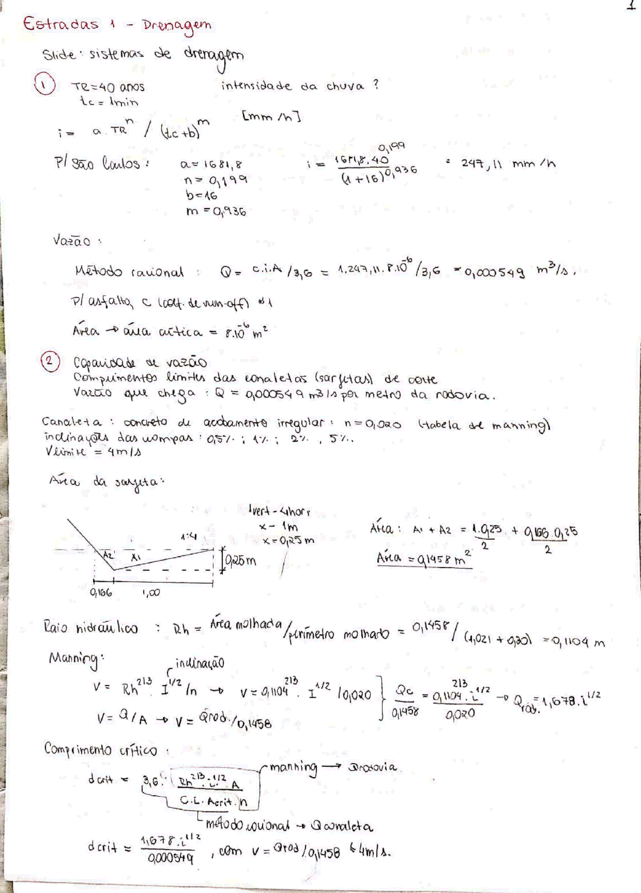 1
Estradas 1 - Drenagem
Slide: sistemas de drenagem
1 TR=40 anos intensidade da chuva?
tc = 1min
i = a.TR^n / (tc+b)^m [mm/h]
P/ São Carlos: a=1681,8 i = 1681,8.40^0,199 / (1+16)^0,936 = 247,11 mm/h
n=0,199
b=16
m=0,936
Vazão:
Método racional: Q= c.i.A/3,6 = 1.247,11.8.10^-6/3,6 = 0,000549 m³/s.
P/ asfalto, C (coef. de run-off) ≈1
Área → área crítica = 8.10^-6 m²
2 Capacidade de vazão
Comprimentos limites das canaletas (sarjetas) de corte
Vazão que chega: Q = 0,000549 m³/s por metro da rodovia.
Canaleta: concreto de acabamento irregular: n=0,020 (tabela de manning)
inclinações das rampas: 0,5%; 1%; 2%, 5%.
Vlimite = 4m/s
Área da sarjeta:
1vert - 4horr
x - 1m
x=0,25m
1:4
A2 A1
0,25m
0,166 1,00
Área: A1 + A2 = 1.0,25/2 + 0,166.0,25/2
Área = 0,1458 m²
Raio hidráulico: Rh = Área molhada/perímetro molhado = 0,1458/(1,021 + 0,30) = 0,1104 m
Manning:
inclinação
V = Rh^2/3 . I^1/2/n → V=0,1104^2/3 . I^1/2/0,020 } Qc/0,1458 = 0,1104^2/3 . i^1/2/0,020 → Qrod.=1,678.i^1/2
V = Q/A → V = Qrod./0,1458
Comprimento crítico:
dcrit = 3,6. Rh^2/3 . i^1/2 . A / C.L.Acrit.n
manning → Qrodovia
método racional → Qcanaleta
dcrit = 1,678.i^1/2 / 0,000549, com V = Qrod/0,1458 ≤ 4m/s.